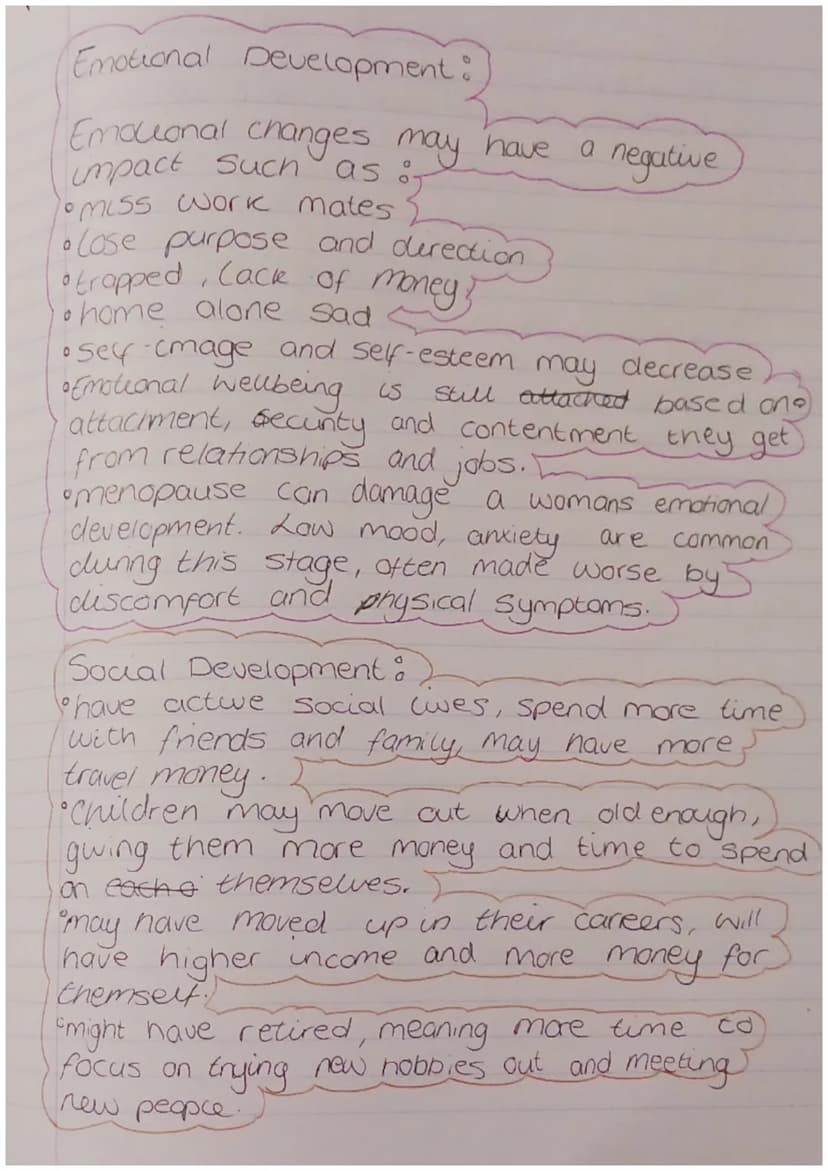 Emotional Development:
Emotional changes may have a negative
impact such as:
• miss work mates
• lose purpose and direction
• trapped, lack of money
• home alone sad
• self-image and self-esteem may decrease
• Emotional wellbeing is still attached based on
attacment, security and contentment they get
from relationships and jobs.
• menopause can damage a womans emotional
development. Low mood, anxiety are common
during this stage, often made worse by
discomfort and physical symptoms.
Social Development:
• have active social lives, spend more time
with friends and family, may have more
travel money.
• Children may move out when old enough,
giving them more money and time to spend
on themselves.
• may have moved up in their careers, will
have higher income and more money for
themself.
• might have retired, meaning more time to
focus on trying new hobbies out and meeting
new people.